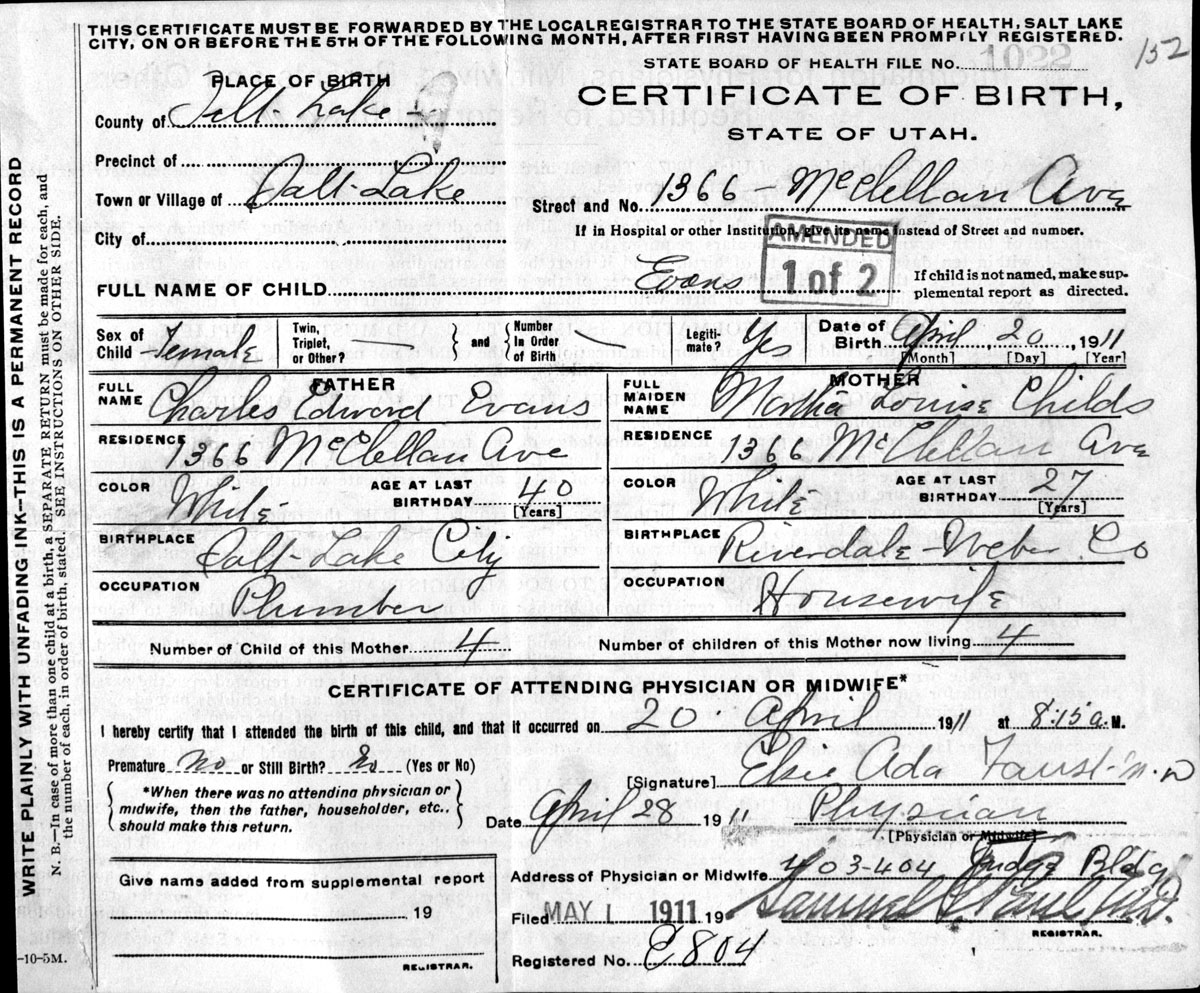 THIS CERTIFICATE MUST BE FORWARDED BY THE LOCAL REGISTRAR TO THE STATE BOARD OF HEALTH, SALT LAKE
CITY, ON OR BEFORE THE 5TH OF THE FOLLOWING MONTH, AFTER FIRST HAVING BEEN PROMPTLY REGISTERED.
152
STATE BOARD OF HEALTH FILE No. 1022
PLACE OF BIRTH
CERTIFICATE OF BIRTH,
STATE OF UTAH.
County of Salt Lake
Precinct of
Town or Village of Salt Lake
Street and No. 1366 - McClellan Ave
City of
If in Hospital or other Institution, give its name instead of Street and number.
AMENDED
1 of 2
FULL NAME OF CHILD Evans
If child is not named, make sup-
plemental report as directed.
Sex of Child Female
Twin, Triplet, or Other? — and Number In Order of Birth —
Legiti mate? Yes
Date of Birth April 20, 1911
[Month] [Day] [Year]
FATHER
FULL NAME Charles Edward Evans
MOTHER
FULL MAIDEN NAME Martha Louise Childs
RESIDENCE 1366 McClellan Ave
RESIDENCE 1366 McClellan Ave
COLOR White AGE AT LAST BIRTHDAY 40 [Years]
COLOR White AGE AT LAST BIRTHDAY 27 [Years]
BIRTHPLACE Salt Lake City
BIRTHPLACE Riverdale - Weber Co
OCCUPATION Plumber
OCCUPATION Housewife
Number of Child of this Mother 4
Number of children of this Mother now living 4
CERTIFICATE OF ATTENDING PHYSICIAN OR MIDWIFE*
I hereby certify that I attended the birth of this child, and that it occurred on 20 April 1911 at 8:15 a. M.
Premature No or Still Birth? No (Yes or No)
*When there was no attending physician or
midwife, then the father, householder, etc.,
should make this return.
[Signature] Elsie Ada Faust M.D
Date April 28 1911 Physician
[Physician or Midwife]
Give name added from supplemental report
19
REGISTRAR.
Address of Physician or Midwife 403-404 Judge Bldg
Filed MAY 1 1911 19
Samuel G. Paul M.D.
REGISTRAR.
Registered No. E804
-10-5M.
WRITE PLAINLY WITH UNFADING INK—THIS IS A PERMANENT RECORD
N. B.—In case of more than one child at a birth, a SEPARATE RETURN must be made for each, and
the number of each, in order of birth, stated. SEE INSTRUCTIONS ON OTHER SIDE.